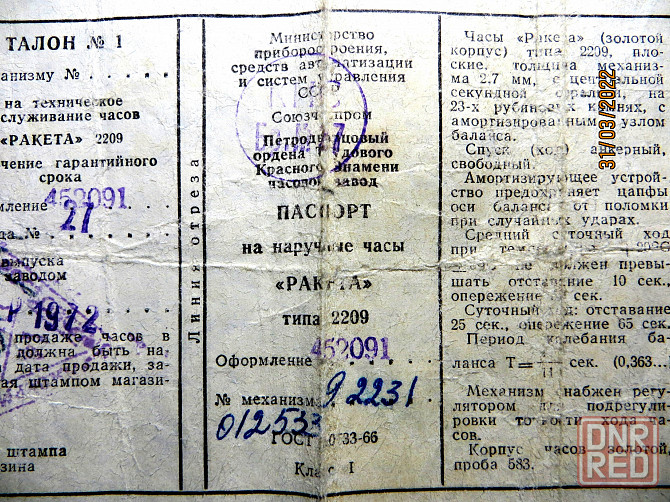 ТАЛОН № 1
еханизму №
на техническое
служивание часов
«РАКЕТА» 2209
чение гарантийного
срока
мление 452091
27
да №
выпуска
заводом
1972
продаже часов в
должна быть на,
дата продажи, за-
ая штампом магази-
штампа
зина
Линия отреза
Министерство
приборостроения,
средств автоматизации
и систем управления
СССР
Союзчаспром
Петродворцовый
ордена Трудового
Красного Знамени
часовой завод
ПАСПОРТ
на наручные часы
«РАКЕТА»
типа 2209
Оформление 452091
№ механизма 92231
012533
ГОСТ 10733-66
Класс I
Часы «Ракета» (золотой
корпус) типа 2209, плос-
кие, толщина механиз-
ма 2.7 мм, с центральной
секундной стрелкой, на
23-х рубиновых камнях, с
амортизированным узлом
баланса.
Спуск (ход) анкерный,
свободный.
Амортизирующее устрой-
ство предохраняет цапфы
оси баланса от поломки
при случайных ударах.
Средний суточный ход
при
не должен превы-
шать отставание 10 сек.,
опережение сек.
Суточный ход: отставание
25 сек., опережение 65 сек.
Период колебания ба-
ланса Т= сек. (0,363...
11
Механизм снабжен регу-
лятором для подрегули-
ровки точности хода ча-
сов.
Корпус часов золотой,
проба 583.
31/03/2022
DNR
RED